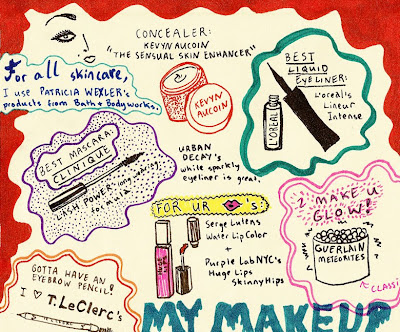 CONCEALER:
KEVYN AUCOIN
"THE SENSUAL SKIN ENHANCER"
KEVYN
AUCOIN
For all skincare,
I use PATRICIA WEXLER's
products from Bath + Bodyworks.
BEST
LIQUID
EYELINER:
L'oreal's
Lineur
Intense
L'OREAL
BEST MASCARA-
CLINIQUE
LASH POWER
URBAN
DECAY's
white sparkly
eyeliner is great.
FOR UR
Serge Lutens
Water Lip Color
+
Purple Lab NYC's
Huge Lips
Skinny Hips
2 MAKE U
GLOW!
GUERLAIN
METEORITES
CLASSI
GOTTA HAVE AN
EYEBROW PENCIL!
I ♥ T.LeClerc's
MY MAKEUP